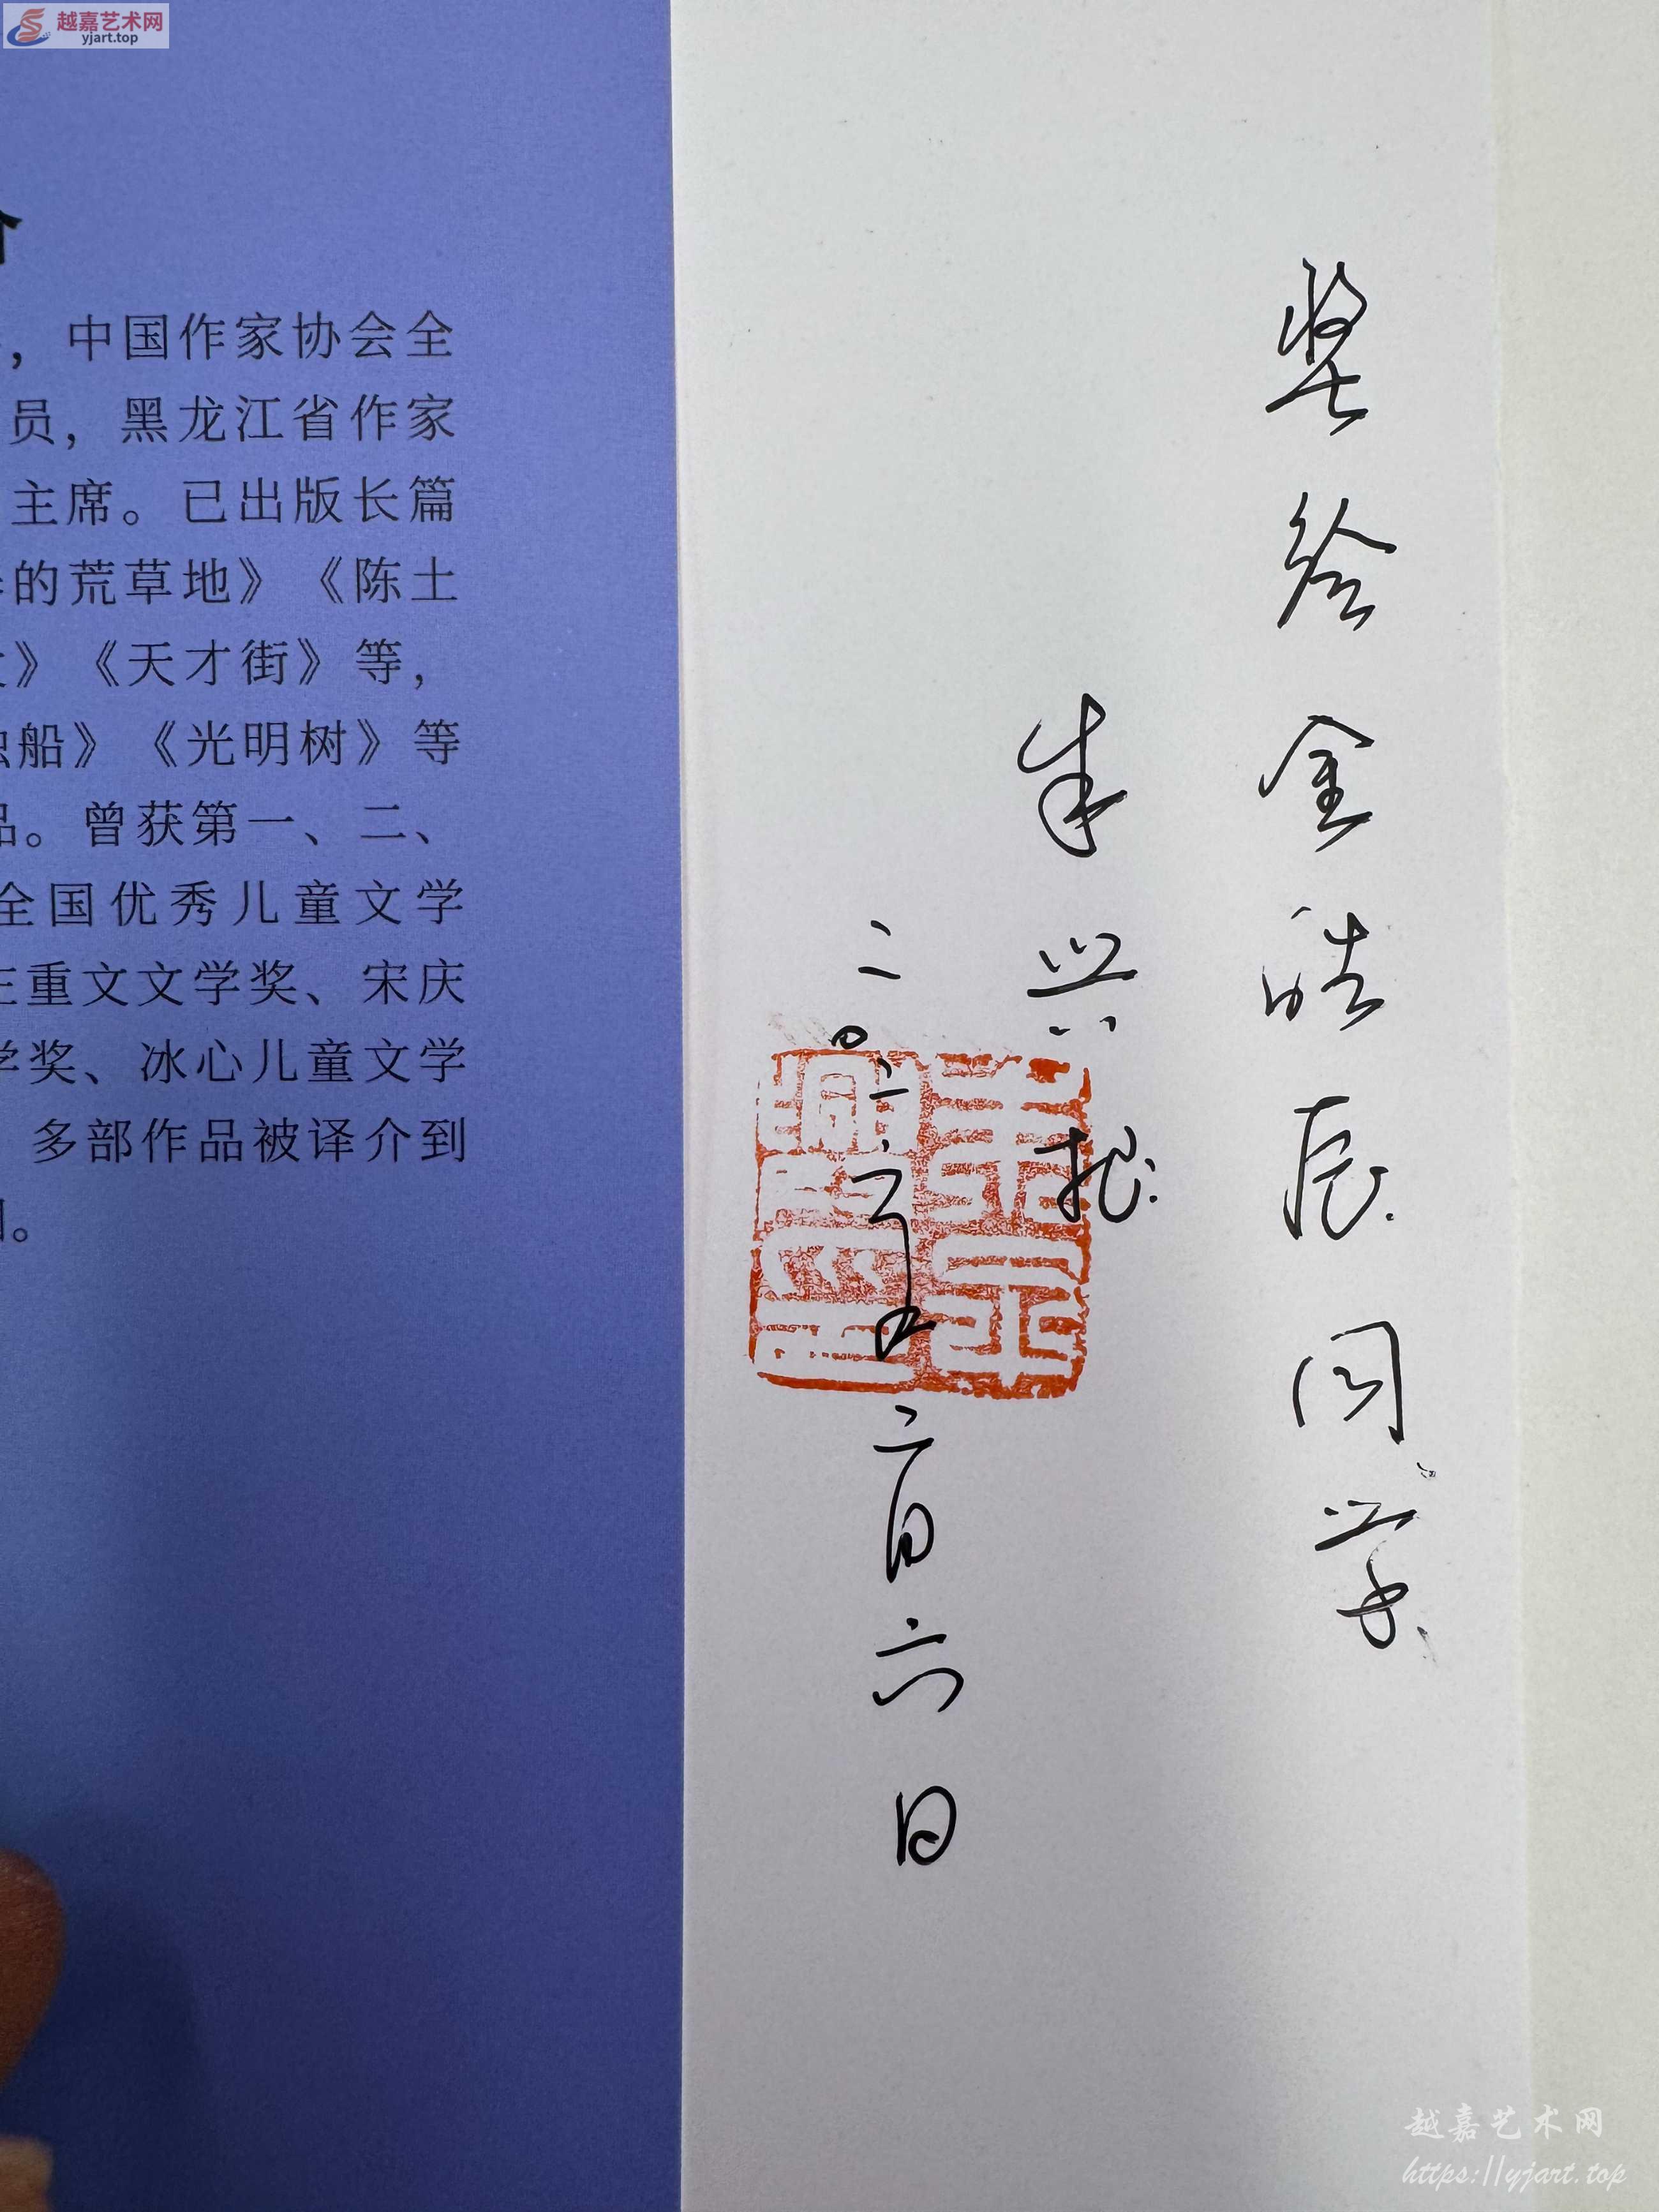 越嘉艺术网
yjart.top
介
，中国作家协会全
员，黑龙江省作家
主席。已出版长篇
的荒草地》《陈土
》《天才街》等，
船》《光明树》等
品。曾获第一、二、
全国优秀儿童文学
庄重文文学奖、宋庆
学奖、冰心儿童文学
多部作品被译介到
。
奖给金皓辰同学
朱兴根
二〇二五
六日
越嘉艺术网
https://yjart.top